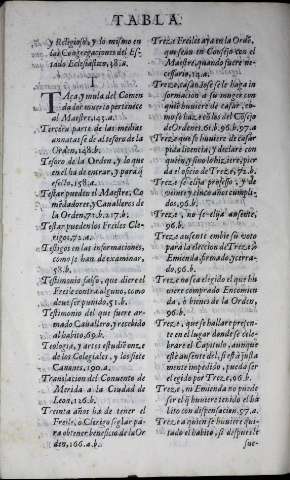 TABLA
y Religioso, y lo mismo en
las Congregaciones del Es-
tado Eclesiastico, 38.a.
T
TAça y mula del Comen
dador muerto pertenece
al Maestre, 45.a.
Tercera parte de las medias
annatas se dè al tesoro de la
Orden, 148.b.
Tesoro de la Orden, y lo que
en el ha de entrar, y para q̃
efecto, 158.a.
Testar pueden el Maestre, Co
mẽdadores, y Caualleros de
la Orden, 72.b. 217.b.
Testar pueden los Freiles Cle
rigos, 72.a.
Testigos en las informaciones,
como se han de examinar,
58.b.
Testimonio falso, que diere el
Freile contra alguno, como
deue ser punido, 51.b.
Testimonio del que fuere ar-
mado Cauallero, y recebido
al habito, 69.b.
Teologia, y artes estudiẽ onze
de los Colegiales, y los siete
Canones, 190.a.
Translacion del Conuento de
Merida a la Ciudad de
Leon, 126.b.
Treinta años ha de tener el
Freile, o Clerigo seglar pa-
ra obtener beneficio de la Or
den, 166.a.b.
Treze Freiles aya en la Ordẽ,
que sean en Consejo con el
Maestre, quando fuere ne-
cessario, 13.a.
Treze, casandose se le haga in
formacion a su muger con
quiẽ huuiere de casar, co-
mo se haze, con los del Consejo
de Ordenes, 61.b. 96.b. 97.a.
Treze que se huuiere de casar
pida licencia, y declare con
quiẽ, y si no lo hiziere, pier-
da el oficio de Treze, 61.b.
Treze, sea elija professo, y de
veinte y cinco años cumpli-
dos, 96.b.
Treze, no se elija ausente,
96.b.
Treze ausente embie su voto
para la eleccion de Treze, ò
Emienda firmado, y cerra-
do, 96.b.
Treze no sea elegido el que hu
uiere comprado Encomien
da, ò bienes de la Orden,
96.b.
Treze, que se hallare presen-
te en el lugar donde se cele-
brare el Capitulo, aunque
estè ausente del, si està justa
mente impedido, pueda ser
elegido por Treze, 96.b.
Treze, ni Emienda no puede
ser el q̃ huuiere tenido el ha
bito con dispensacion. 97.a.
Treze a quien se huuiere qui-
tado el habito, si despues le
sue-